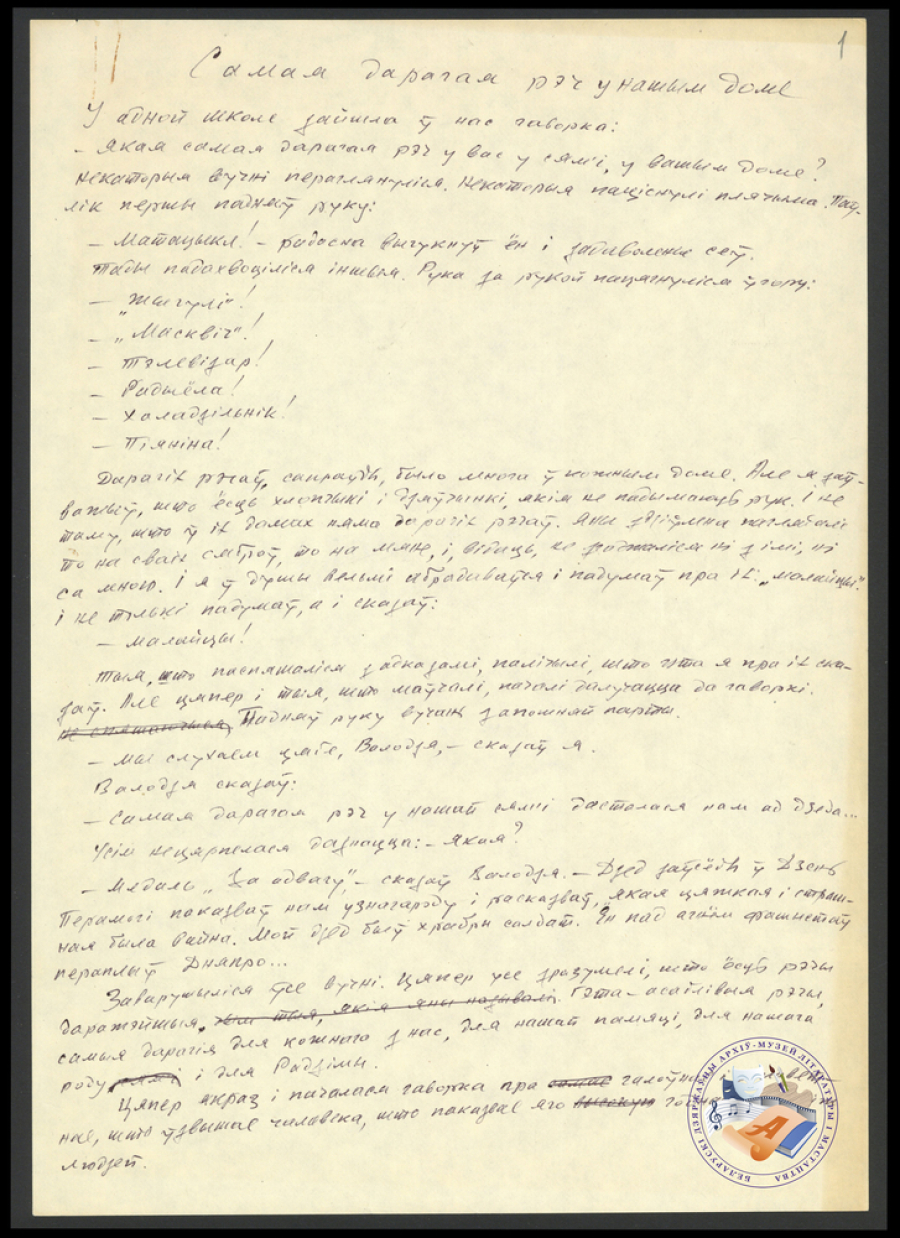 1
Самая дарагая рэч у нашым доме
У адной школе зайшла ў нас гаворка:
– Якая самая дарагая рэч у вас у сям'і, у вашым доме?
Некаторыя вучні пераглянуліся. Некаторыя паціснулі плячыма. Паў-
лік першы падняў руку:
– Матацыкл! – радасна выгукнуў ён і задаволена сеў.
Тады падахвоціліся іншыя. Рука за рукой пацягнуліся ўгору:
– „Жыгулі“!
– „Масквіч“!
– Тэлевізар!
– Радыёла!
– Халадзільнік!
– Піяніна!
Дарагіх рэчаў, сапраўды, было многа ў кожным доме. Але я заў-
важыў, што ёсць хлопчыкі і дзяўчынкі, якія не падымаюць рук. І не
таму, што ў іх дамах няма дарагіх рэчаў. Яны здзіўлена паглядалі
то на сваіх сяброў, то на мяне, і, відаць, не згаджаліся ні з імі, ні
са мною. І я ў душы вельмі абрадаваўся і падумаў пра іх: „малайцы“.
І не толькі падумаў, а і сказаў:
– Малайцы!
Тыя, што паспяшаліся з адказамі, палічылі, што гэта я пра іх ска-
заў. Але цяпер і тыя, што маўчалі, пачалі далучацца да гаворкі.
Падняў руку вучань з апошняй парты.
– Мы слухаем цябе, Володзя, – сказаў я.
Валодзя сказаў:
– Самая дарагая рэч у нашай сям'і дасталася нам ад дзеда...
Усім нецярпелася дазнацца: – Якая?
– Медаль „За адвагу“, – сказаў Валодзя. – Дзед заўсёды ў Дзень
Перамогі паказваў нам узнагароду і расказваў, якая цяжкая і страш-
ная была вайна. Мой дзед быў храбры салдат. Ён пад агнём фашыстаў
пераплыў Дняпро...
Заварушыліся ўсе вучні. Цяпер усе зразумелі, што ёсць рэчы
даражэйшыя, чым тыя, якія яны называлі. Гэта – асаблівыя рэчы,
самыя дарагія для кожнага з нас, для нашай памяці, для нашага
роду і для Радзімы.
Цяпер якраз і пачалася гаворка пра галоўнае і
нае, што ўзвышае чалавека, што паказвае яго высокую
людзей.
БЕЛАРУСКІ ДЗЯРЖАЎНЫ АРХІЎ-МУЗЕЙ ЛІТАРАТУРЫ І МАСТАЦТВА